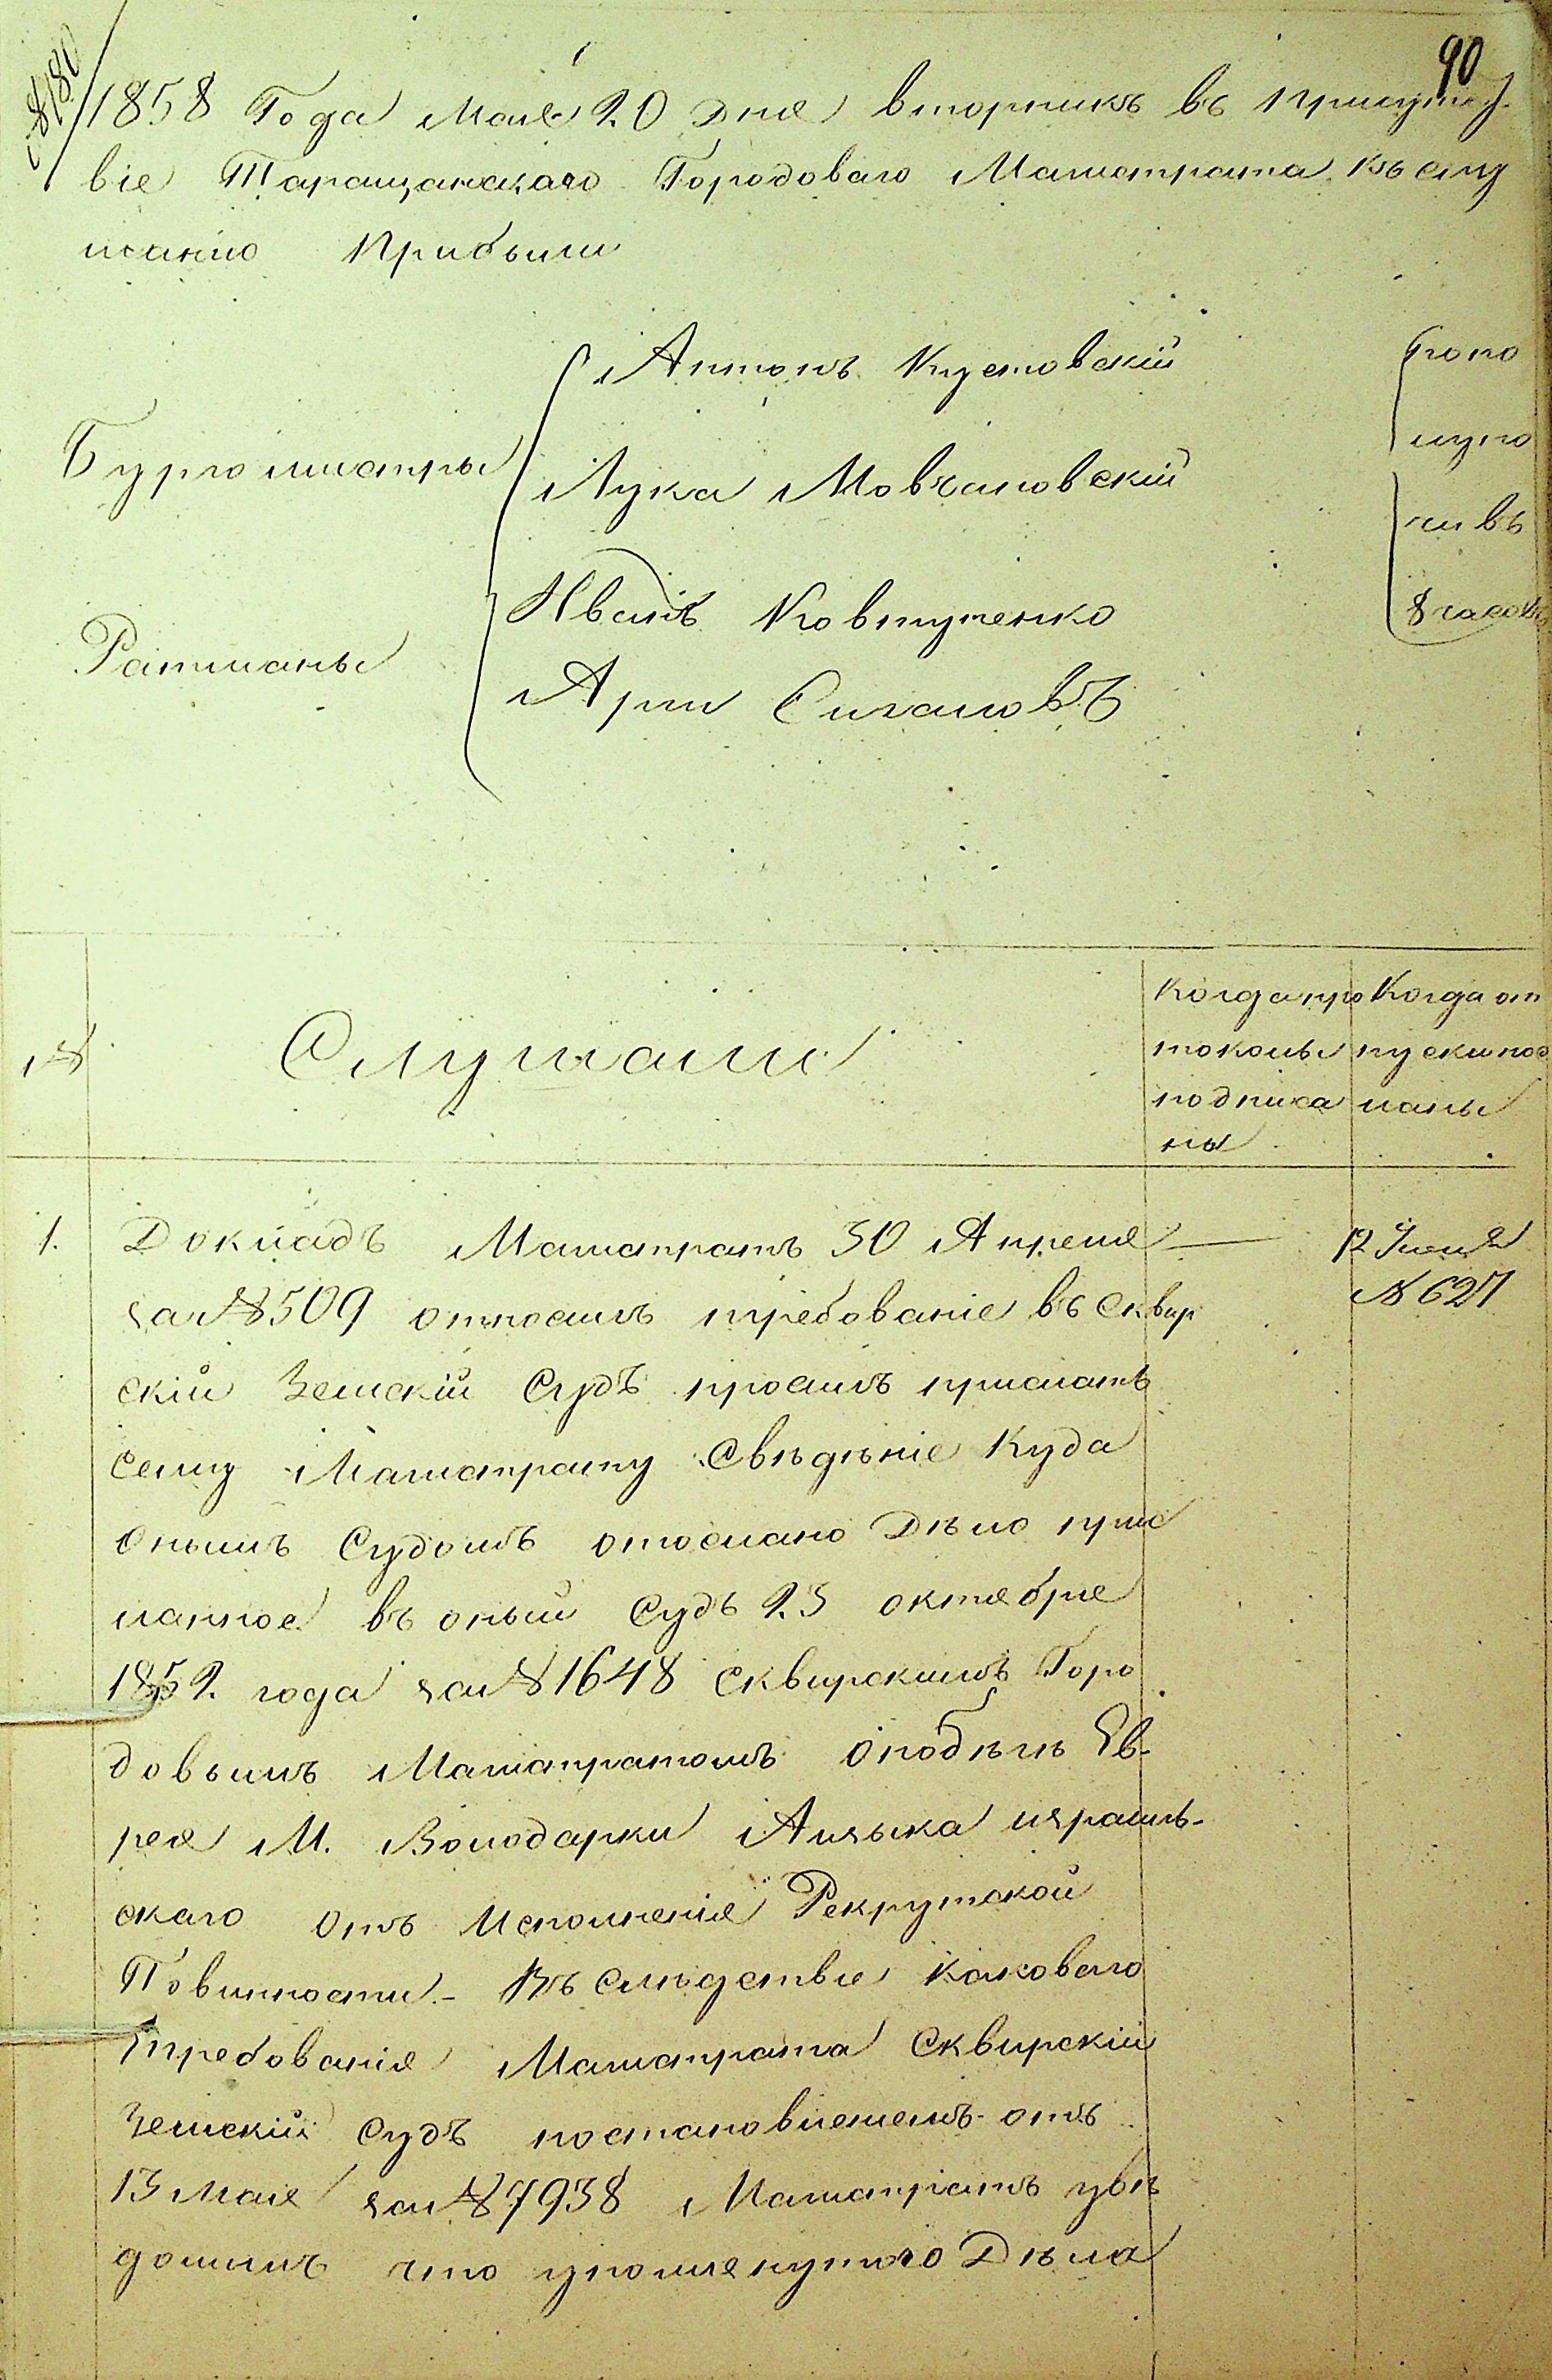 90
№ 180
1858 Года Мая 20 Дня вторникъ въ Присутст
віе Таращанскаго Городоваго Магистрата къ слу
шанію Прибыли
Бургомистры
Антонъ Кустовскій
Лука Мовчановскій
Ратманы
Иванъ Ковтуненко
Арш
попо
луно
чи въ
8 часовъ
№
Слушали
Когда про
токолы
подписа
ны
Когда от
пуски пос
ланы
1.
Докладъ Магистратъ 30 Апреля
за № 509 относилъ требованіе въ Сквир
скій Земскій Судъ просилъ прислать
Сему Магистрату Свѣдѣніе Куда
Онымъ Судомъ отослано Дѣло прис
ланное въ оный Судъ 23 октября
1852 года за № 1648 Сквирскимъ Горо
довымъ Магистратомъ о побѣгѣ Ев-
рея М. Володарки Аизыка израиль-
скаго Отъ Исполненія Рекрутской
Повинности.- Въ Слѣдствіе каковаго
требованія Магистрата Сквирскій
Земскій Судъ отъ
13 Мая за № 7938 Магистратъ увѣ
домилъ что упомянутого Дѣла
12 Іюня
№ 627